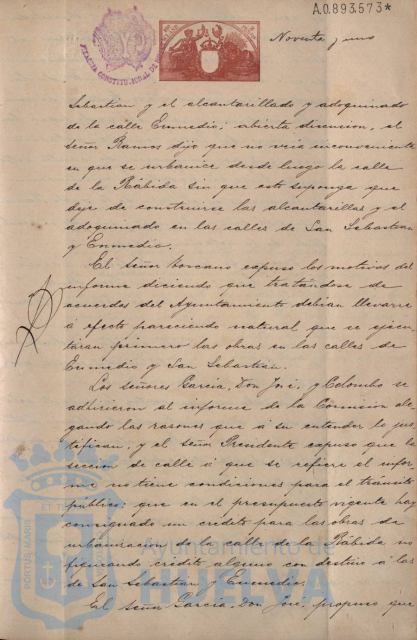 A.0.893.573*
Noventa y uno
ALCALDIA CONSTITUCIONAL DE
Sebastian y el alcantarillado y adoquinado
de la calle Enmedio; abierta discusion, el
señor Ramos dijo que no veia inconveniente
en que se urbanice desde luego la calle
de la Rábida sin que esto suponga que
deje de construirse las alcantarillas y el
adoquinado en las calles de San Sebastian
y Enmedio.
El señor Toscano expuso los motivos del
informe diciendo que tratándose de
acuerdos del Ayuntamiento debian llevarse
á efecto pareciendo natural que se ejecu
taran primero las obras en las calles de
Enmedio y San Sebastian.
Los señores Garcia, Don José, y Colombo se
adhirieron al informe de la Comision ale
gando las razones que á su entender lo jus
tifican, y el señor Presidente expuso que la
seccion de calle á que se refiere el infor
me no tiene condiciones para el tránsito
público; que en el presupuesto vigente hay
consignado un crédito para las obras de
urbanizacion de la calle de la Rábida no
figurando crédito alguno con destino á las
de San Sebastian y Enmedio.
El señor Garcia, Don José, propuso que
PORTUS MARIS
Ayuntamiento de
HUELVA